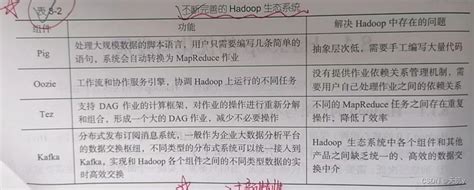 表 8-2 不断完善的 Hadoop 生态系统
组件 功能 解决 Hadoop 中存在的问题
Pig 处理大规模数据的脚本语言，用户只需要编写几条简单的语句，系统会自动转换为 MapReduce 作业 抽象层次低，需要手工编写大量代码
Oozie 工作流和协作服务引擎，协调 Hadoop 上运行的不同任务 没有提供作业依赖关系管理机制，需要用户自己处理作业之间的依赖关系
Tez 支持 DAG 作业的计算框架，对作业的操作进行重新分解和组合，形成一个大的 DAG 作业，减少不必要操作 不同的 MapReduce 任务之间存在重复操作，降低了效率
Kafka 分布式发布订阅消息系统，一般作为企业大数据分析平台的数据交换枢纽，不同类型的分布式系统可以统一接入到 Kafka，实现和 Hadoop 各个组件之间的不同类型数据的实时高效交换 Hadoop 生态系统中各个组件和其他产品之间缺乏统一的、高效的数据交换中介